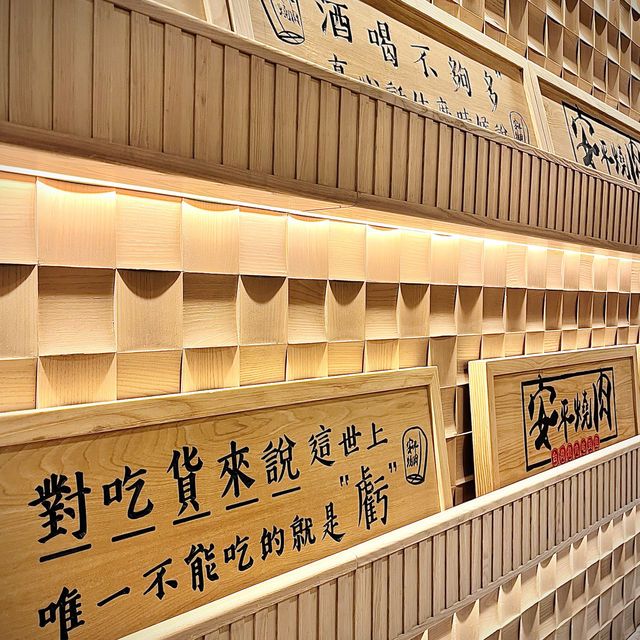 酒喝不夠多"
安平燒肉
對吃貨來說這世上
唯一不能吃的就是"虧"
安平燒肉